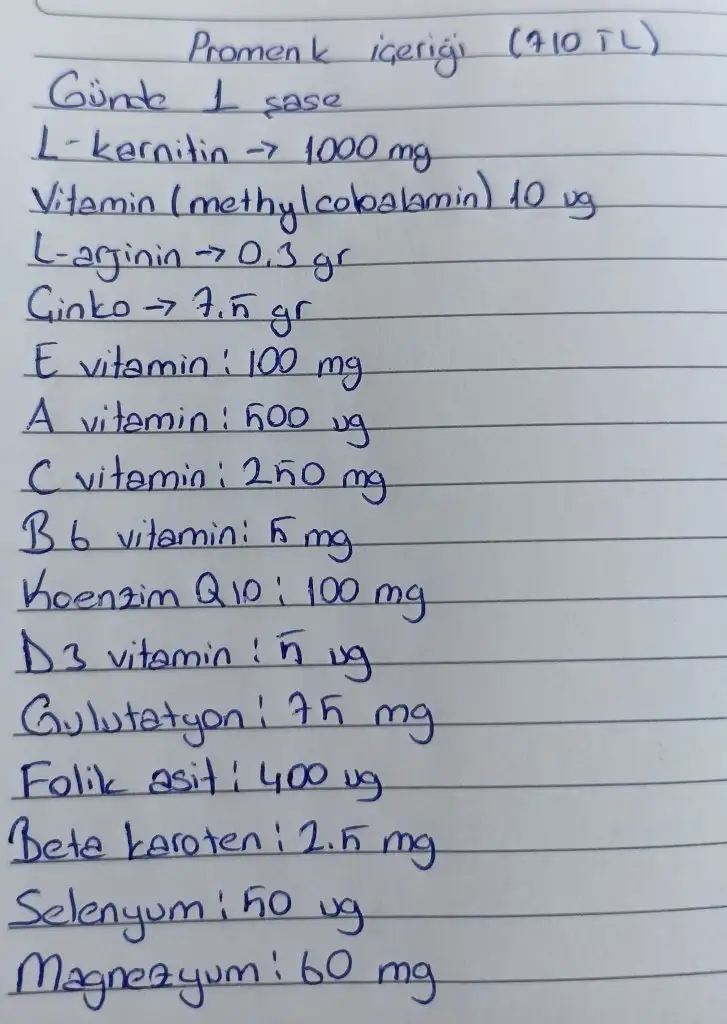 Promenk içeriği (710 TL)
Günde 1 şase
L-karnitin → 1000 mg
Vitamin (methylcobalamin) 10 ug
L-arjinin → 0.3 gr
Ginko → 7.5 gr
E vitamin: 100 mg
A vitamin: 500 ug
C vitamin: 250 mg
B6 vitamin: 5 mg
Koenzim Q10: 100 mg
D3 vitamin: 5 ug
Gulutatyon: 75 mg
Folik asit: 400 ug
Beta karoten: 2.5 mg
Selenyum: 50 ug
Magnezyum: 60 mg